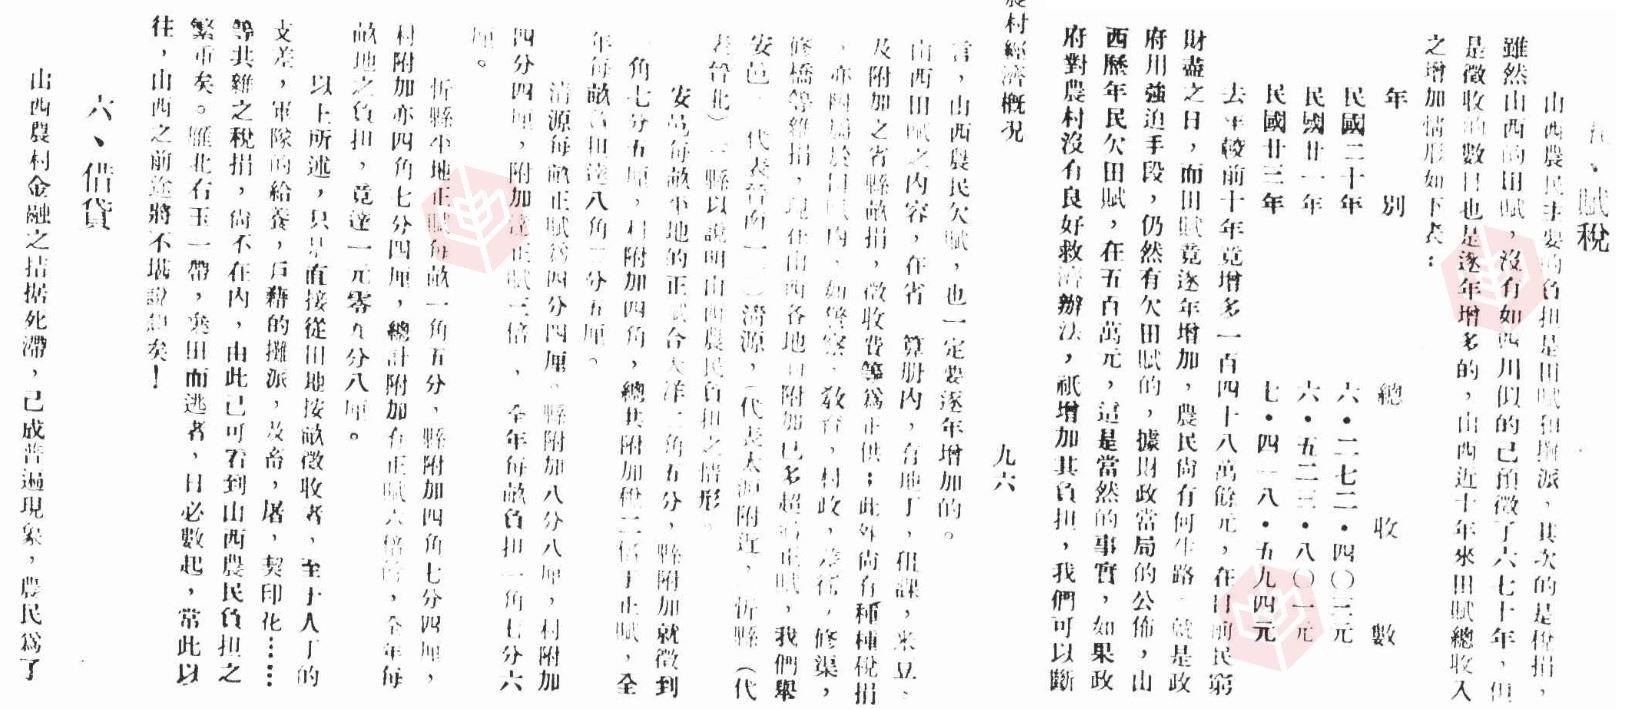 五、賦稅
山西農民主要的負担是田賦和攤派，其次的是稅捐，
雖然山西的田賦，沒有如四川似的已預徵了六七十年，但
是徵收的數目也是逐年增多的，山西近十年來田賦總收入
之增加情形如下表：
年　別　總　收　數
民國二十年　六・二七二・四〇三元
民國廿一年　六・五二三・八〇一元
民國廿三年　七・四一八・五九四元
去年較前十年竟增多一百四十八萬餘元，在目前民窮
財盡之日，而田賦竟逐年增加，農民尙有何生路，就是政
府用強迫手段，仍然有欠田賦的，據財政當局的公佈，山
西歷年民欠田賦，在五百萬元，這是當然的事實，如果政
府對農村沒有良好救濟辦法，祇增加其負担，我們可以斷
農村經濟概況
九六
言，山西農民欠賦，也一定要逐年增加的。
山西田賦之內容，在省　算册內，有地丁，租課，米豆，
及附加之省縣畝捐，徵收費等爲正供；此外尙有種種稅捐
，亦四屬於田賦內，如警察，敎育，村政，差徭，修渠，
修橋等雜捐，現在山西各地的附加已多超過正賦，我們舉
安邑，代表晉南一　淸源，（代表太源附近，忻縣（代
表晉北）三縣以說明山西農民負担之情形。
安邑每畝平地的正賦合大洋二角五分，縣附加就徵到
一角七分五厘，村附加四角，總共附加稅二倍于正賦，全
年每畝負担達八角二分五厘。
淸源每畝正賦爲四分四厘。縣附加八分八厘，村附加
四分四厘，附加達正賦三倍，全年每畝負担一角七分六
厘。
忻縣平地正賦每畝一角五分，縣附加四角七分四厘，
村附加亦四角七分四厘，總計附加有正賦六倍的，全年每
畝地之負担，竟達一元零九分八厘。
以上所述，只是直接從田地按畝徵收者，至于人丁的
支差，軍隊的給養，戶籍的攤派，及畜，屠，契印花……
等其雜之稅捐，尙不在內，由此已可看到山西農民負担之
繁重矣。雁北右玉一帶，棄田而逃者，日必數起，常此以
往，山西之前途將不堪設想矣！
六、借貸
山西農村金融之拮据死滯，已成普遍現象，農民爲了